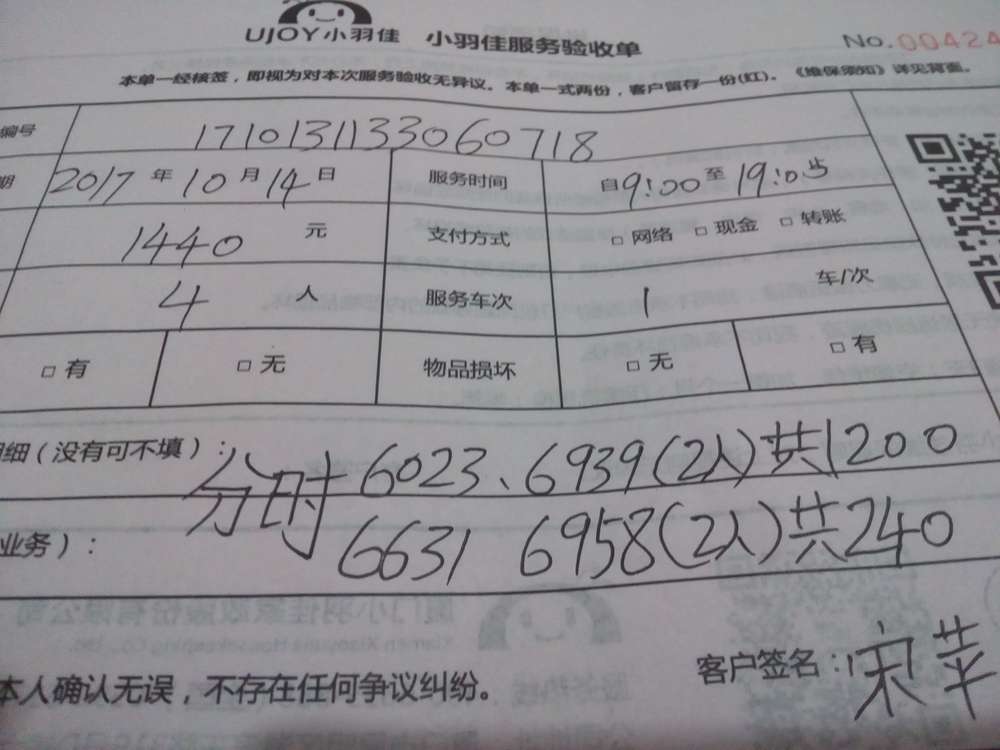 UJOY小羽佳 小羽佳服务验收单 No.00424
本单一经核签，即视为对本次服务验收无异议。本单一式两份，客户留存一份(红)。《维保须知》详见背面。
编号 1710131133060718
期 2017 年 10 月 14 日 服务时间 自 9:00 至 19:05
1440 元 支付方式 □ 网络 □ 现金 □ 转账
4 人 服务车次 1 车/次
□ 有 □ 无 物品损坏 □ 无 □ 有
明细（没有可不填）： 分时 6023、6939(2人)共1200
业务）： 6631 6958(2人)共240
客户签名：
本人确认无误，不存在任何争议纠纷。